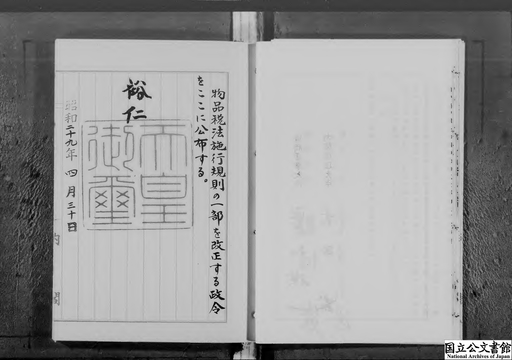 物品税法施行規則の一部を改正する政令
をここに公布する。
裕仁
天皇
御璽
昭和二十九年四月三十日
内閣
国立公文書館
National Archives of Japan